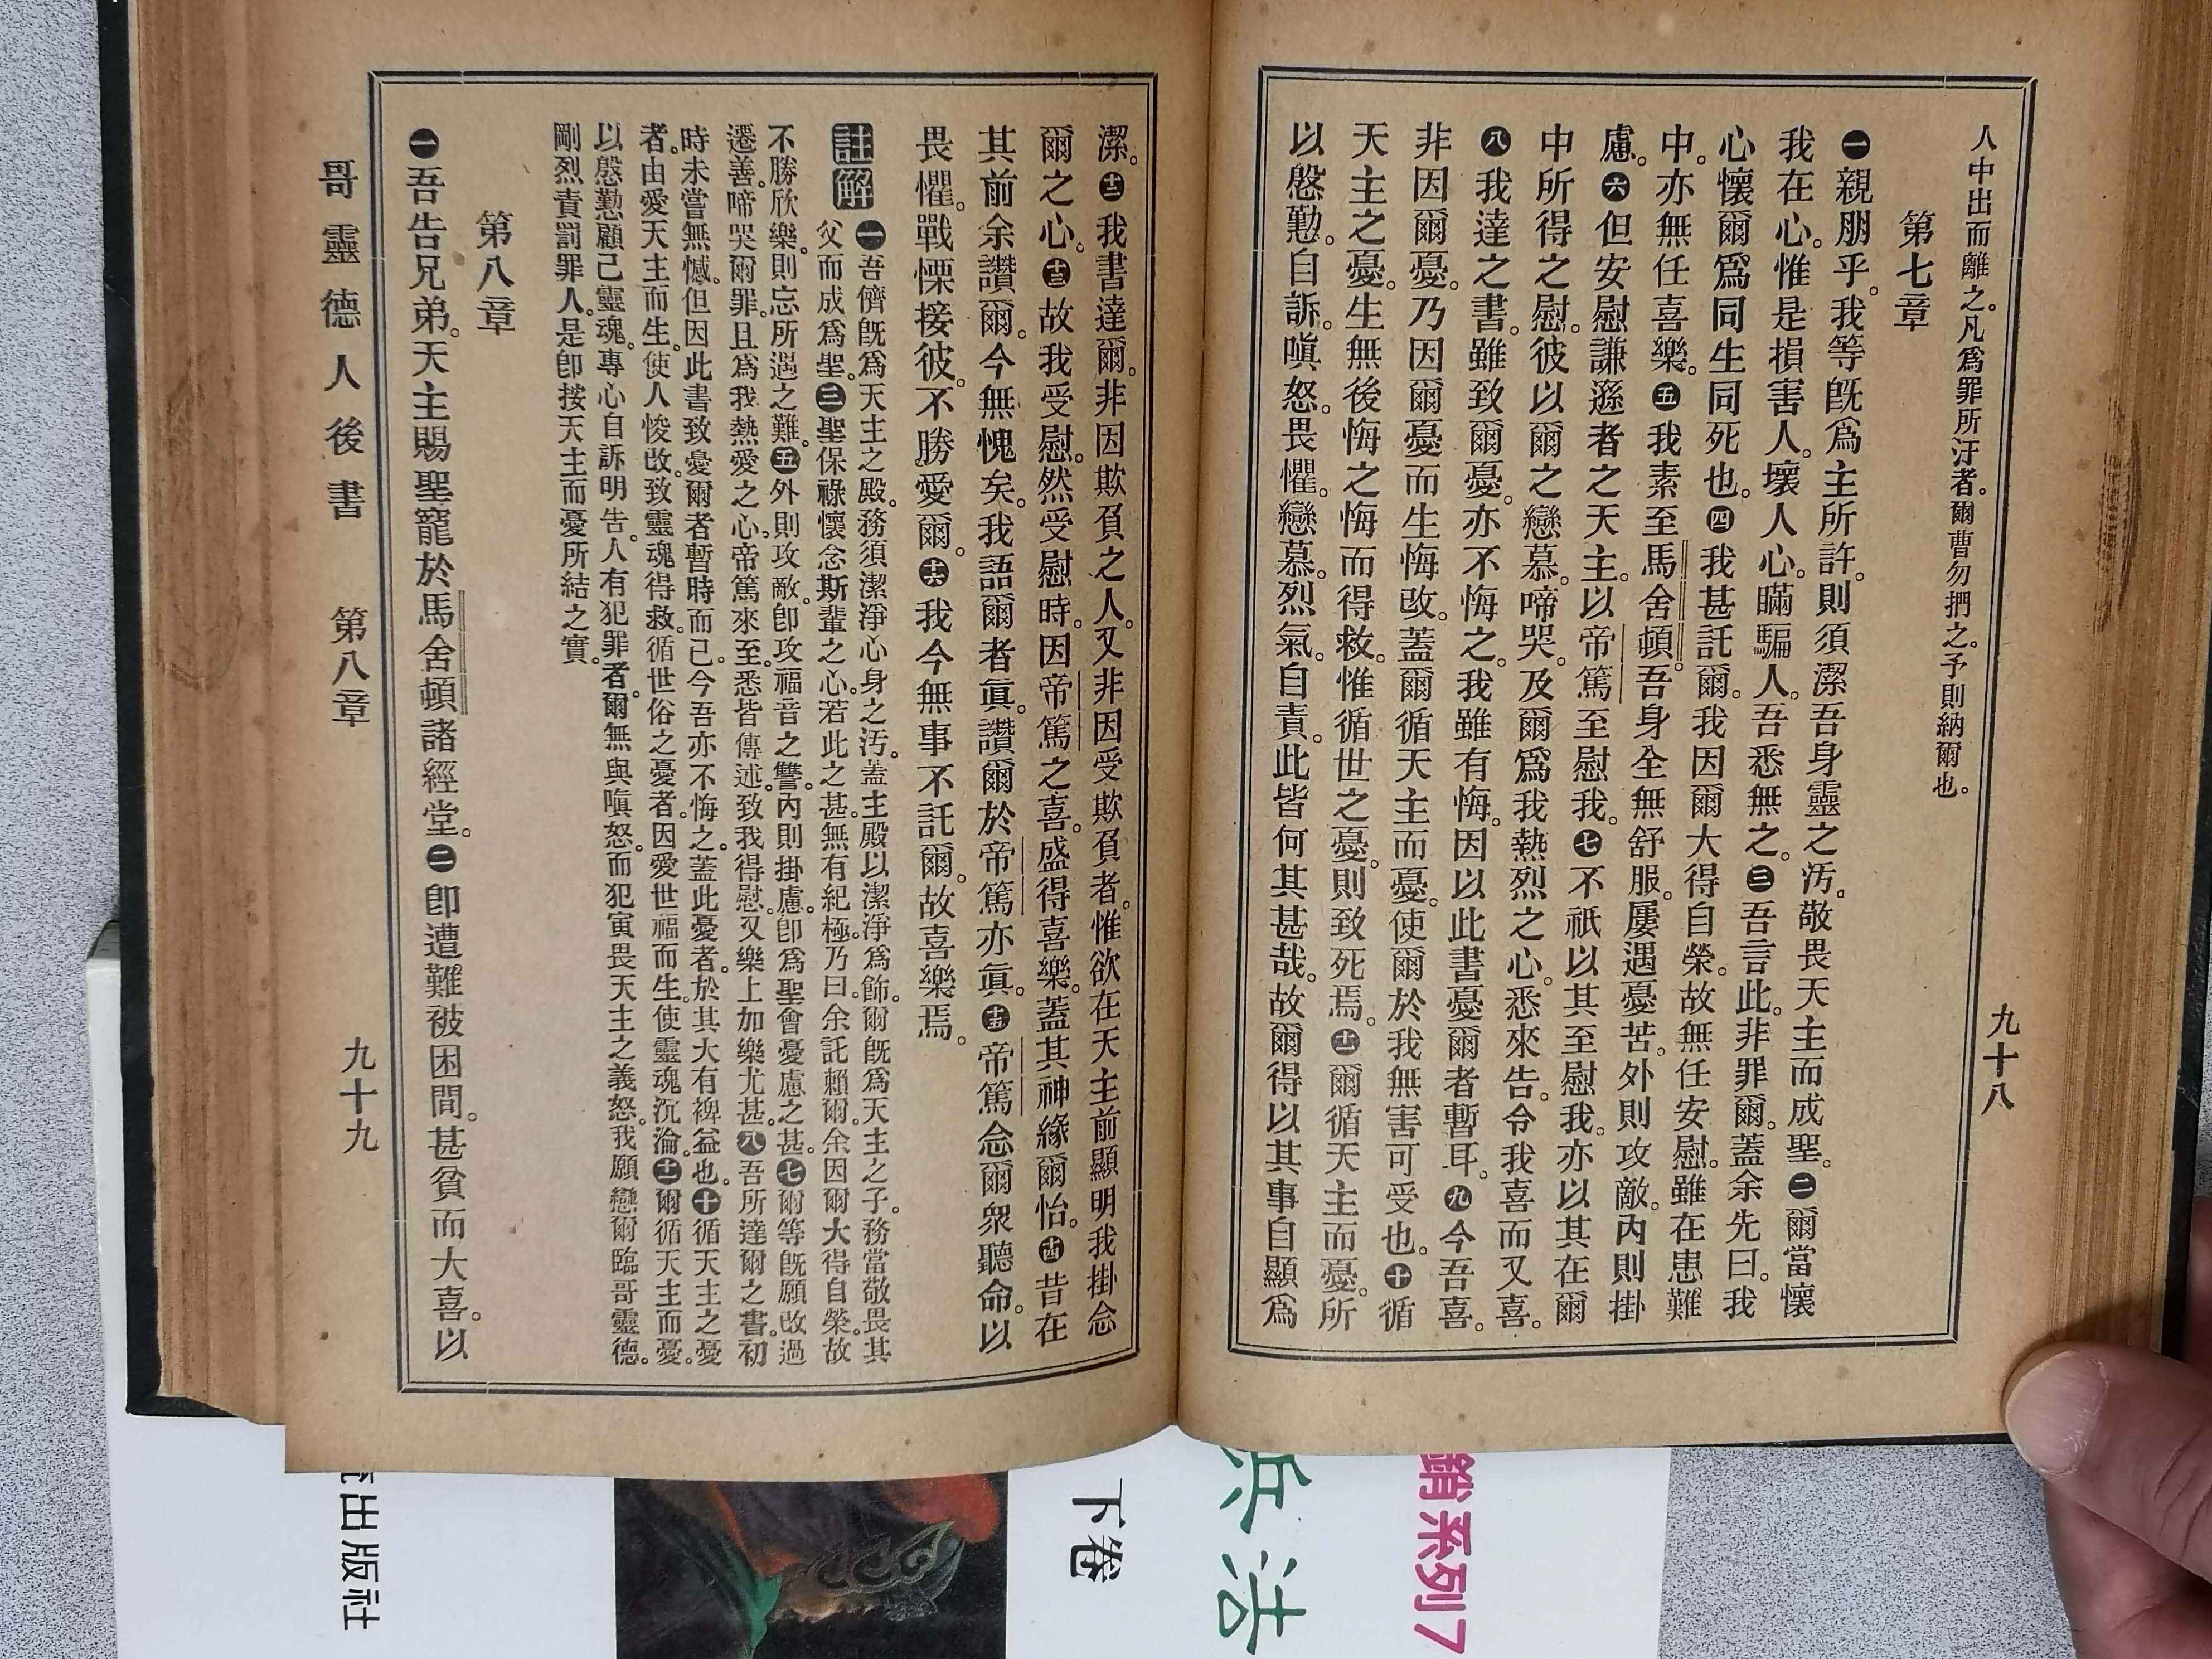 九十八
人中出而離之。凡爲罪所汙者。爾曹勿捫之。予則納爾也。
第七章
㊀親朋乎。我等旣爲主所許。則須潔吾身靈之汚。敬畏天主而成聖。㊁爾當懷
我在心。惟是損害人。壞人心。瞞騙人。吾悉無之。㊂吾言此。非罪爾。蓋余先曰。我
心懷爾爲同生同死也。㊃我甚託爾。我因爾大得自榮。故無任安慰。雖在患難
中。亦無任喜樂。㊄我素至馬舍頓。吾身全無舒服。屢遇憂苦。外則攻敵。內則掛
慮。㊅但安慰謙遜者之天主。以帝篤至慰我。㊆不祇以其至慰我。亦以其在爾
中所得之慰。彼以爾之戀慕。啼哭。及爾爲我熱烈之心。悉來告。令我喜而又喜。
㊇我達之書。雖致爾憂。亦不悔之。我雖有悔。因以此書憂爾者暫耳。㊈今吾喜。
非因爾憂。乃因爾憂而生悔改。蓋爾循天主而憂。使爾於我無害可受也。㊉循
天主之憂。生無後悔之悔而得救。惟循世之憂。則致死焉。⑪爾循天主而憂。所
以慇懃。自訴。嗔怒。畏懼。戀慕。烈氣。自責。此皆何其甚哉。故爾得以其事自顯爲
潔。⑫我書達爾。非因欺負之人。又非因受欺負者。惟欲在天主前顯明我掛念
爾之心。⑬故我受慰。然受慰時。因帝篤之喜。盛得喜樂。蓋其神緣爾怡。⑭昔在
其前余讚爾。今無愧矣。我語爾者眞。讚爾於帝篤亦眞。⑮帝篤念爾衆聽命。以
畏懼戰慄接彼。不勝愛爾。⑯我今無事不託爾。故喜樂焉。
註解
㊀吾儕旣爲天主之殿。務須潔淨心身之汚。蓋主殿以潔淨爲飾。爾旣爲天主之子。務當敬畏其
父而成爲聖。㊂聖保祿懷念斯輩之心。若此之甚。無有紀極。乃曰。余託賴爾。余因爾大得自榮。故
不勝欣樂。則忘所遇之難。㊄外則攻敵。卽攻福音之讐。內則掛慮。卽爲聖會憂慮之甚。㊆爾等旣願改過
遷善。啼哭爾罪。且爲我熱愛之心。帝篤來至。悉皆傳述。致我得慰。又樂上加樂尤甚。㊇吾所達爾之書。初
時未嘗無憾。但因此書致憂爾者暫時而已。今吾亦不悔之。蓋此憂者。於其大有裨益也。㊉循天主之憂
者。由愛天主而生。使人悛改。致靈魂得救。循世俗之憂者。因愛世福而生。使靈魂沉淪。⑪爾循天主而憂。
以慇懃顧己靈魂。專心自訴明告。人有犯罪者。爾無與嗔怒。而犯寅畏天主之義怒。我願戀爾臨哥靈德。
剛烈責罰罪人。是卽按天主而憂所結之實。
第八章
㊀吾告兄弟。天主賜聖寵於馬舍頓諸經堂。㊁卽遭難被困間。甚貧而大喜。以
哥靈德人後書 第八章 九十九
銷系列7
兵法
下卷
出版社